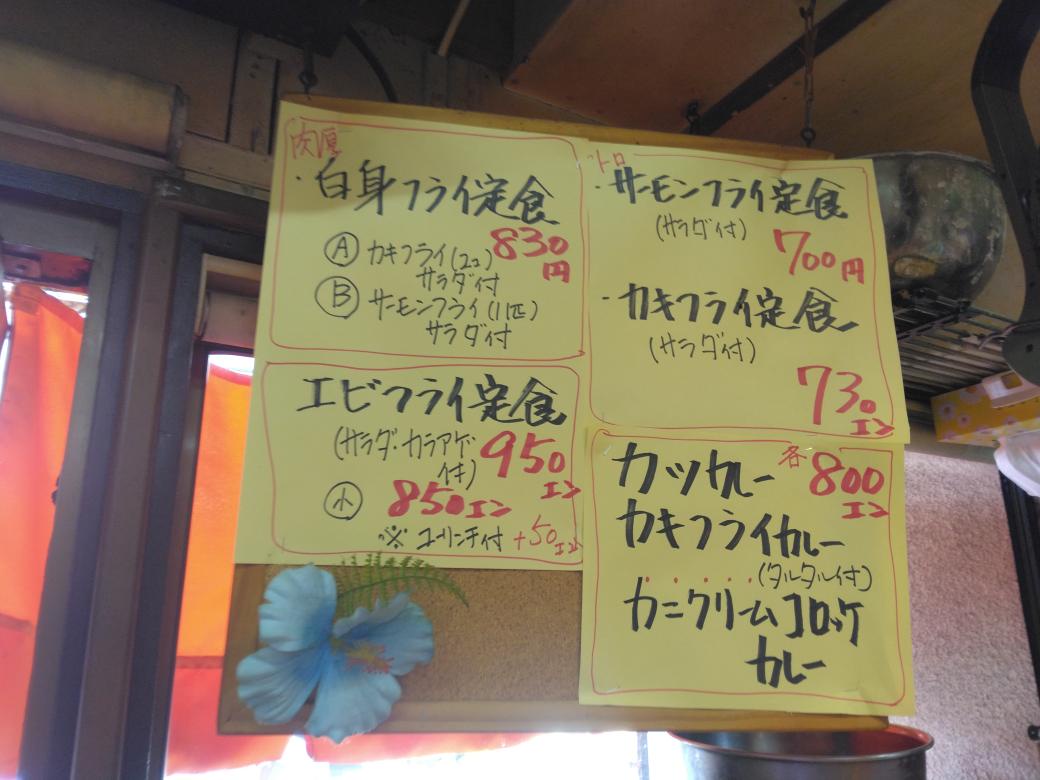 肉厚
・白身フライ定食
Ⓐ カキフライ(2コ) 830円
サラダ付
Ⓑ サーモンフライ(1匹)
サラダ付
エビフライ定食
(サラダ・カラアゲ付) 950エン
小 850エン
※ユーリンチ付 +50エン
トロ
・サーモンフライ定食
(サラダ付)
700円
・カキフライ定食
(サラダ付)
730エン
カツカレー 各800エン
カキフライカレー
(タルタル付)
カニクリームコロッケ
カレー